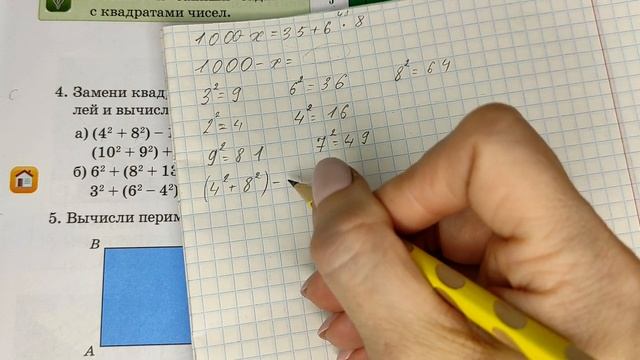 с квадратами чисел.
4. Замени квад
лей и вычисл
а) (4² + 8²) –
(10² + 9²) +
б) 6² + (8² + 1
3² + (6² – 4²)
5. Вычисли перим
B
A
1000-x=35+6·8
1000-x=
3²=9 6²=36 8²=64
2²=4 4²=16
9²=81 7²=49
(4²+8²)-